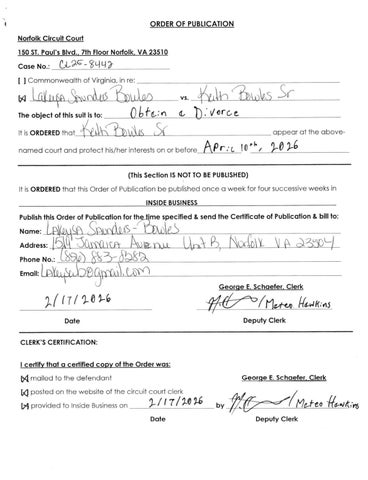 ORDER OF PUBLICATION
Norfolk Circuit Court
150 ST. Paul's Blvd., 7th Floor Norfolk, VA 23510
Case No.: CL25-8442
[ ] Commonwealth of Virginia, in re:
[x] Lakeysa Saunders Bowles vs. Keith Bowles Sr
The object of this suit is to: Obtain a Divorce
It is ORDERED that Keith Bowles Sr appear at the above-
named court and protect his/her interests on or before April 10th, 2026
(This Section IS NOT TO BE PUBLISHED)
It is ORDERED that this Order of Publication be published once a week for four successive weeks in
INSIDE BUSINESS
Publish this Order of Publication for the time specified & send the Certificate of Publication & bill to:
Name: Lakeysa Saunders-Bowles
Address: Jamaica Avenue Unit B, Norfolk VA 23504
Phone No.: 883-8282
Email: @gmail.com
George E. Schaefer, Clerk
2/17/2026 / Meteo Hawkins
Date Deputy Clerk
CLERK'S CERTIFICATION:
I certify that a certified copy of the Order was:
[x] mailed to the defendant George E. Schaefer, Clerk
[x] posted on the website of the circuit court clerk
[x] provided to Inside Business on 2/17/2026 by / Meteo Hawkins
Date Deputy Clerk